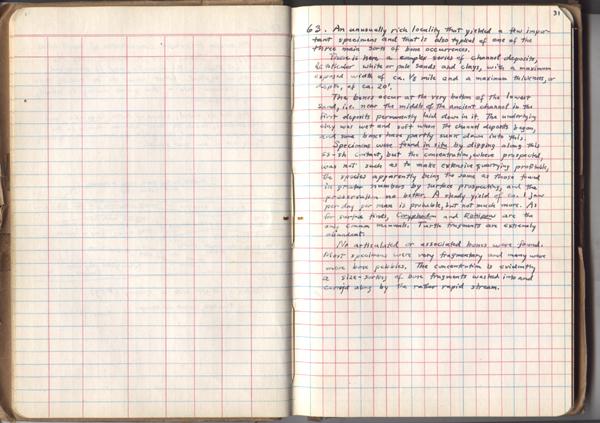 31
63. An unusually rich locality that yielded a few impor-
tant specimens and that is also typical of one of the
three main sorts of bone occurrences.
There is here a complex series of channel deposits,
lenticular white or pale sands and clays, with a maximum
exposed width of ca. 1/8 mile and a maximum thickness, or
depth, of ca. 20'.
The bones occur at the very bottom of the lowest
sand, i.e. near the middle of the ancient channel in the
first deposits permanently laid down in it. The underlying
clay was wet and soft when the channel deposits began,
and some bones have partly sunk down into this.
Specimens were found in situ by digging along this
ss-sh contact, but the concentration, where prospected,
was not such as to make extensive quarrying profitable,
the species apparently being the same as those found
in greater numbers by surface prospecting, and the
preservation no better. A steady yield of ca. 1 jaw
per day per man is probable, but not much more. As
for surface finds, Coryphodon and are the
only common mammals. Turtle fragments are extremely
abundant.
No articulated or associated bones were found.
Most specimens were very fragmentary and many were
mere bone pebbles. The concentration is evidently
a size-sorting of bone fragments washed into and
carried along by the rather rapid stream.